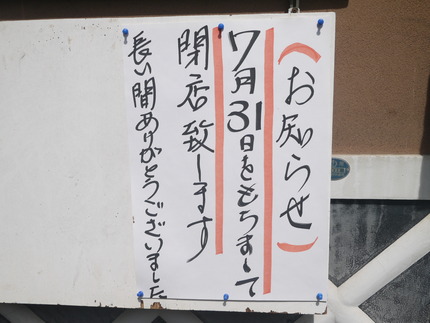 （お知らせ）
7月31日をもちまして
閉店致します
長い間ありがとうございました